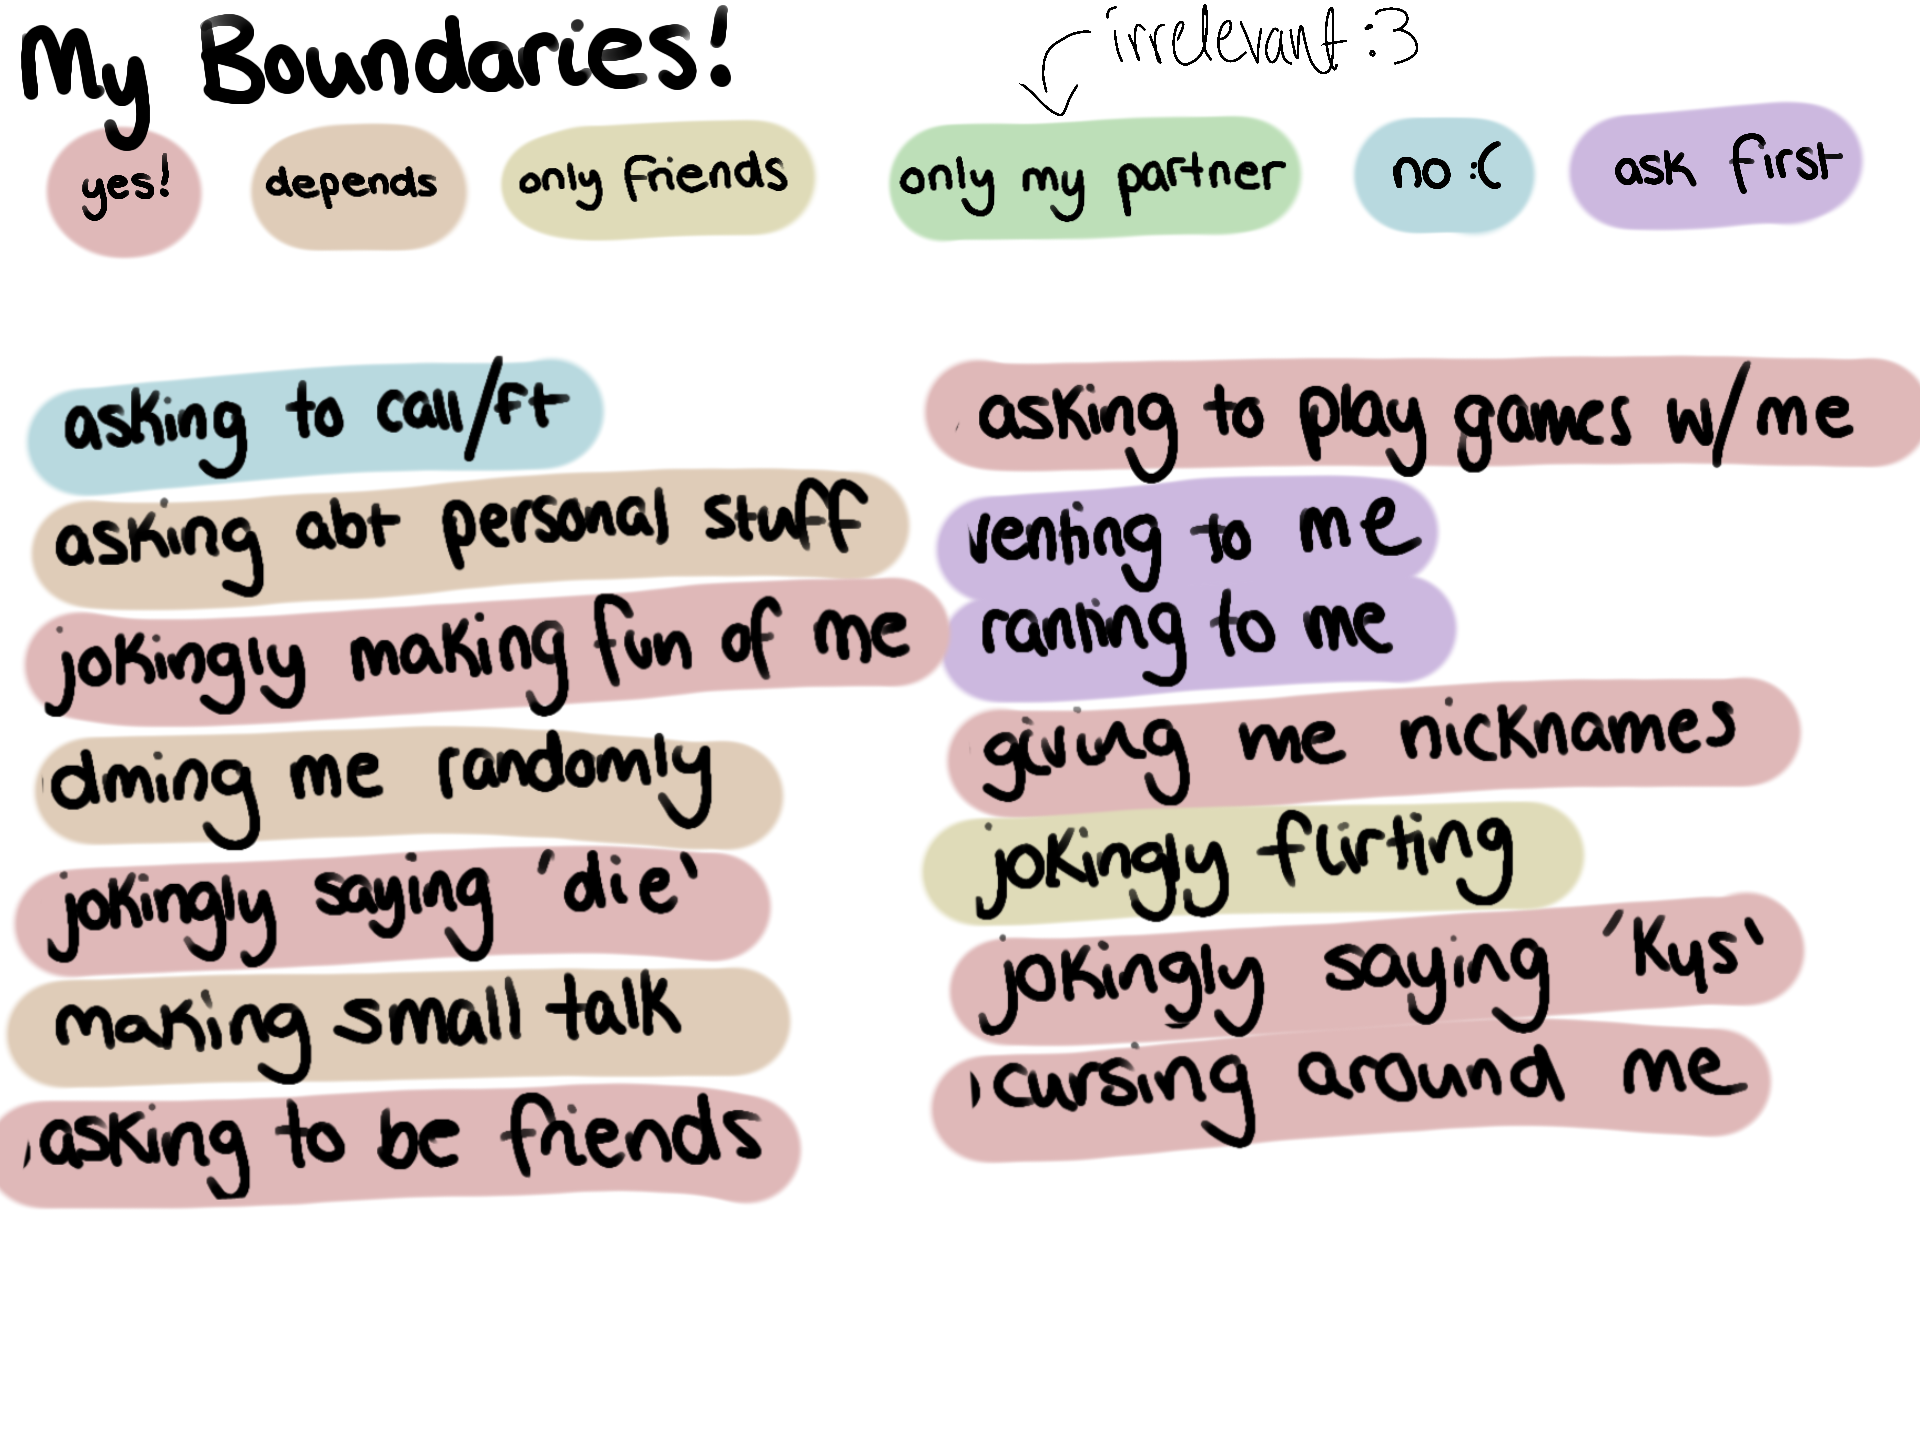 My Boundaries!
irrelevant :3
yes!
depends
only friends
only my partner
no :(
ask first
asking to call/ft
asking abt personal stuff
jokingly making fun of me
dming me randomly
jokingly saying 'die'
making small talk
asking to be friends
asking to play games w/me
venting to me
ranting to me
giving me nicknames
jokingly flirting
jokingly saying 'kys'
cursing around me